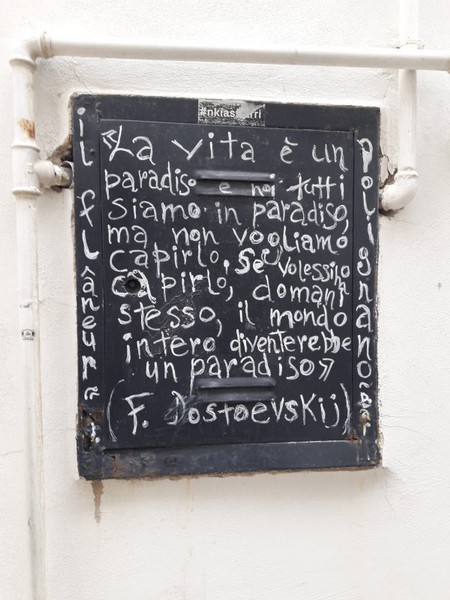 «La vita è un
paradiso e noi tutti
siamo in paradiso,
ma non vogliamo
capirlo, se volessimo
capirlo, domani
stesso, il mondo
intero diventerebbe
un paradiso»
(F. Dostoevskij)
il flâneur
Polignano